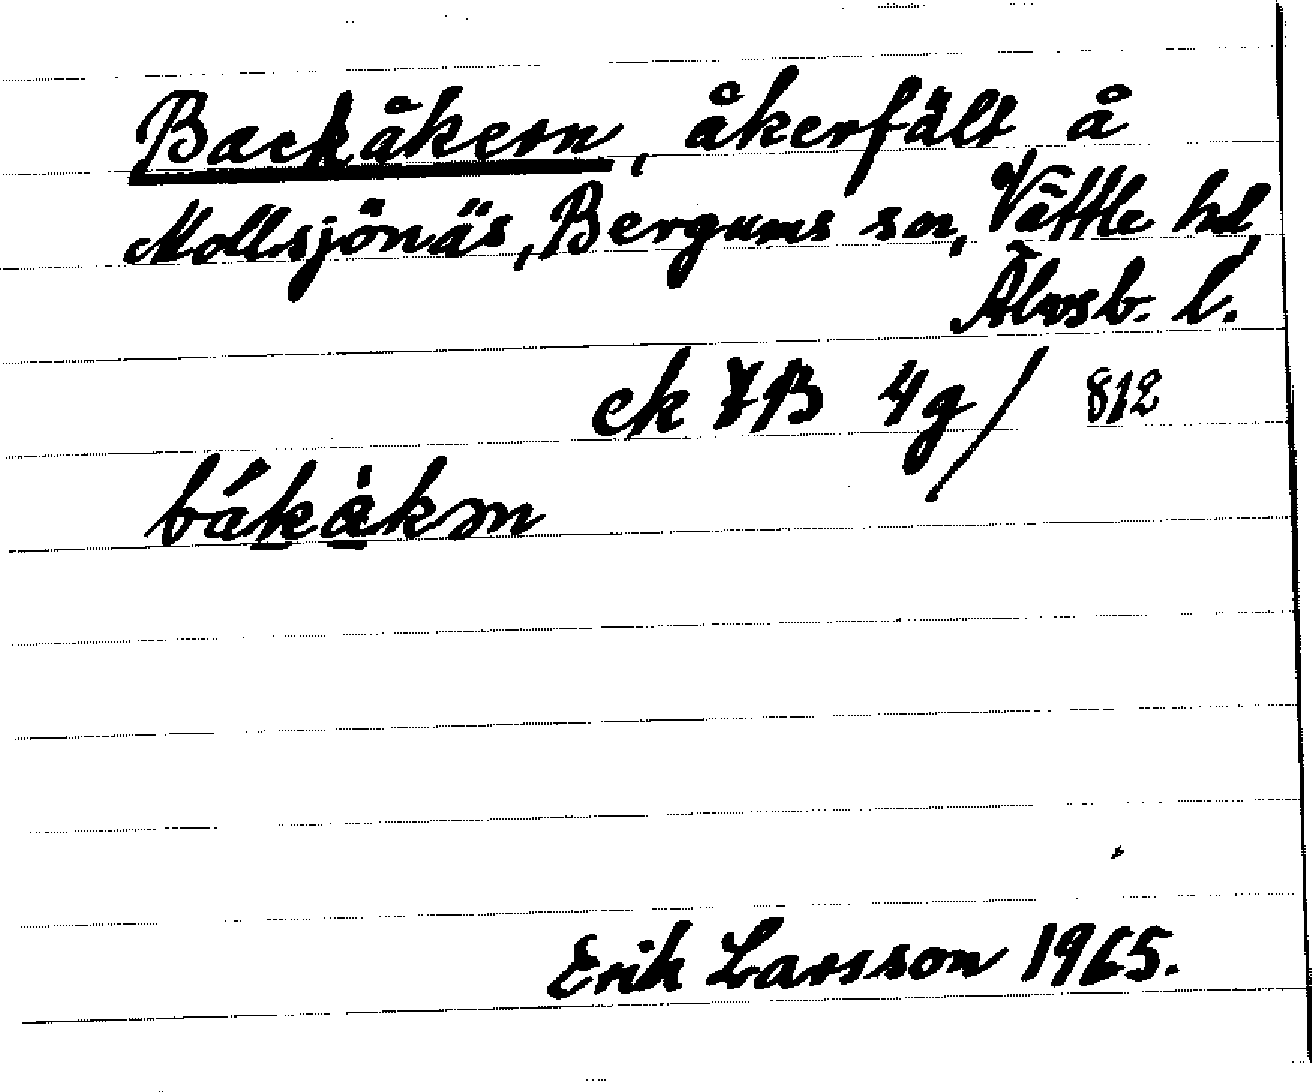 Backåkern, åkerfält å
Mollsjönäs, Bergums sn, Vättle hd,
Älvsb. l.
ek 7B 4g/ 812
bákåkən
Erik Larsson 1965.